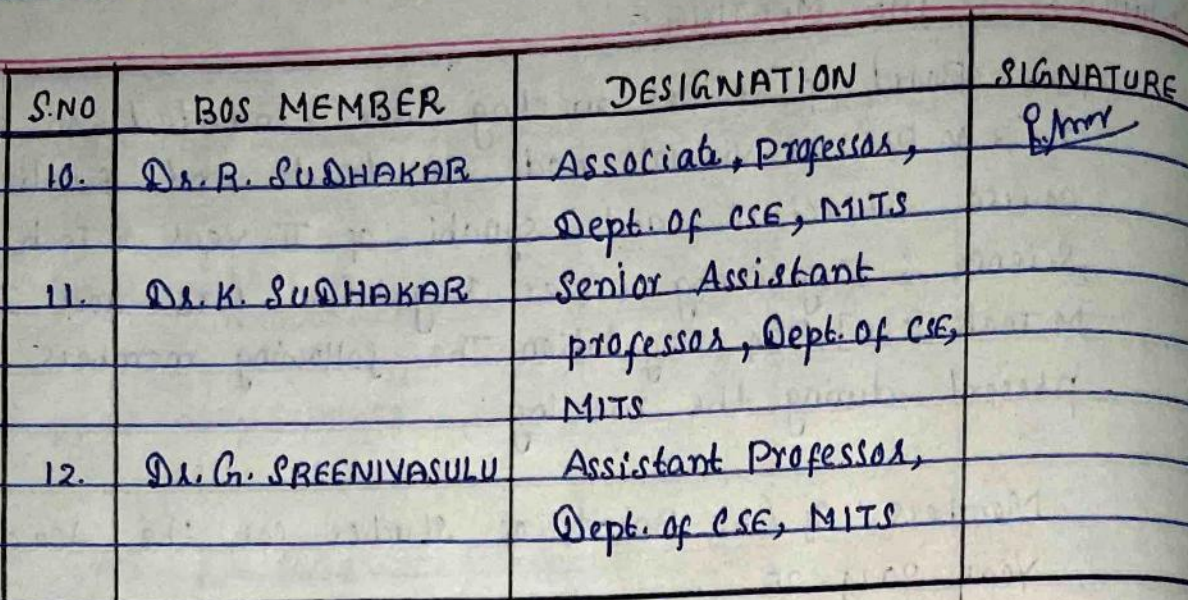 S.NO BOS MEMBER DESIGNATION SIGNATURE
10. Dr. R. SUDHAKAR Associate, Professor,
Dept. of CSE, MITS
11. Dr. K. SUDHAKAR Senior Assistant
professor, Dept. of CSE,
MITS
12. Dr. G. SREENIVASULU Assistant Professor,
Dept. of CSE, MITS